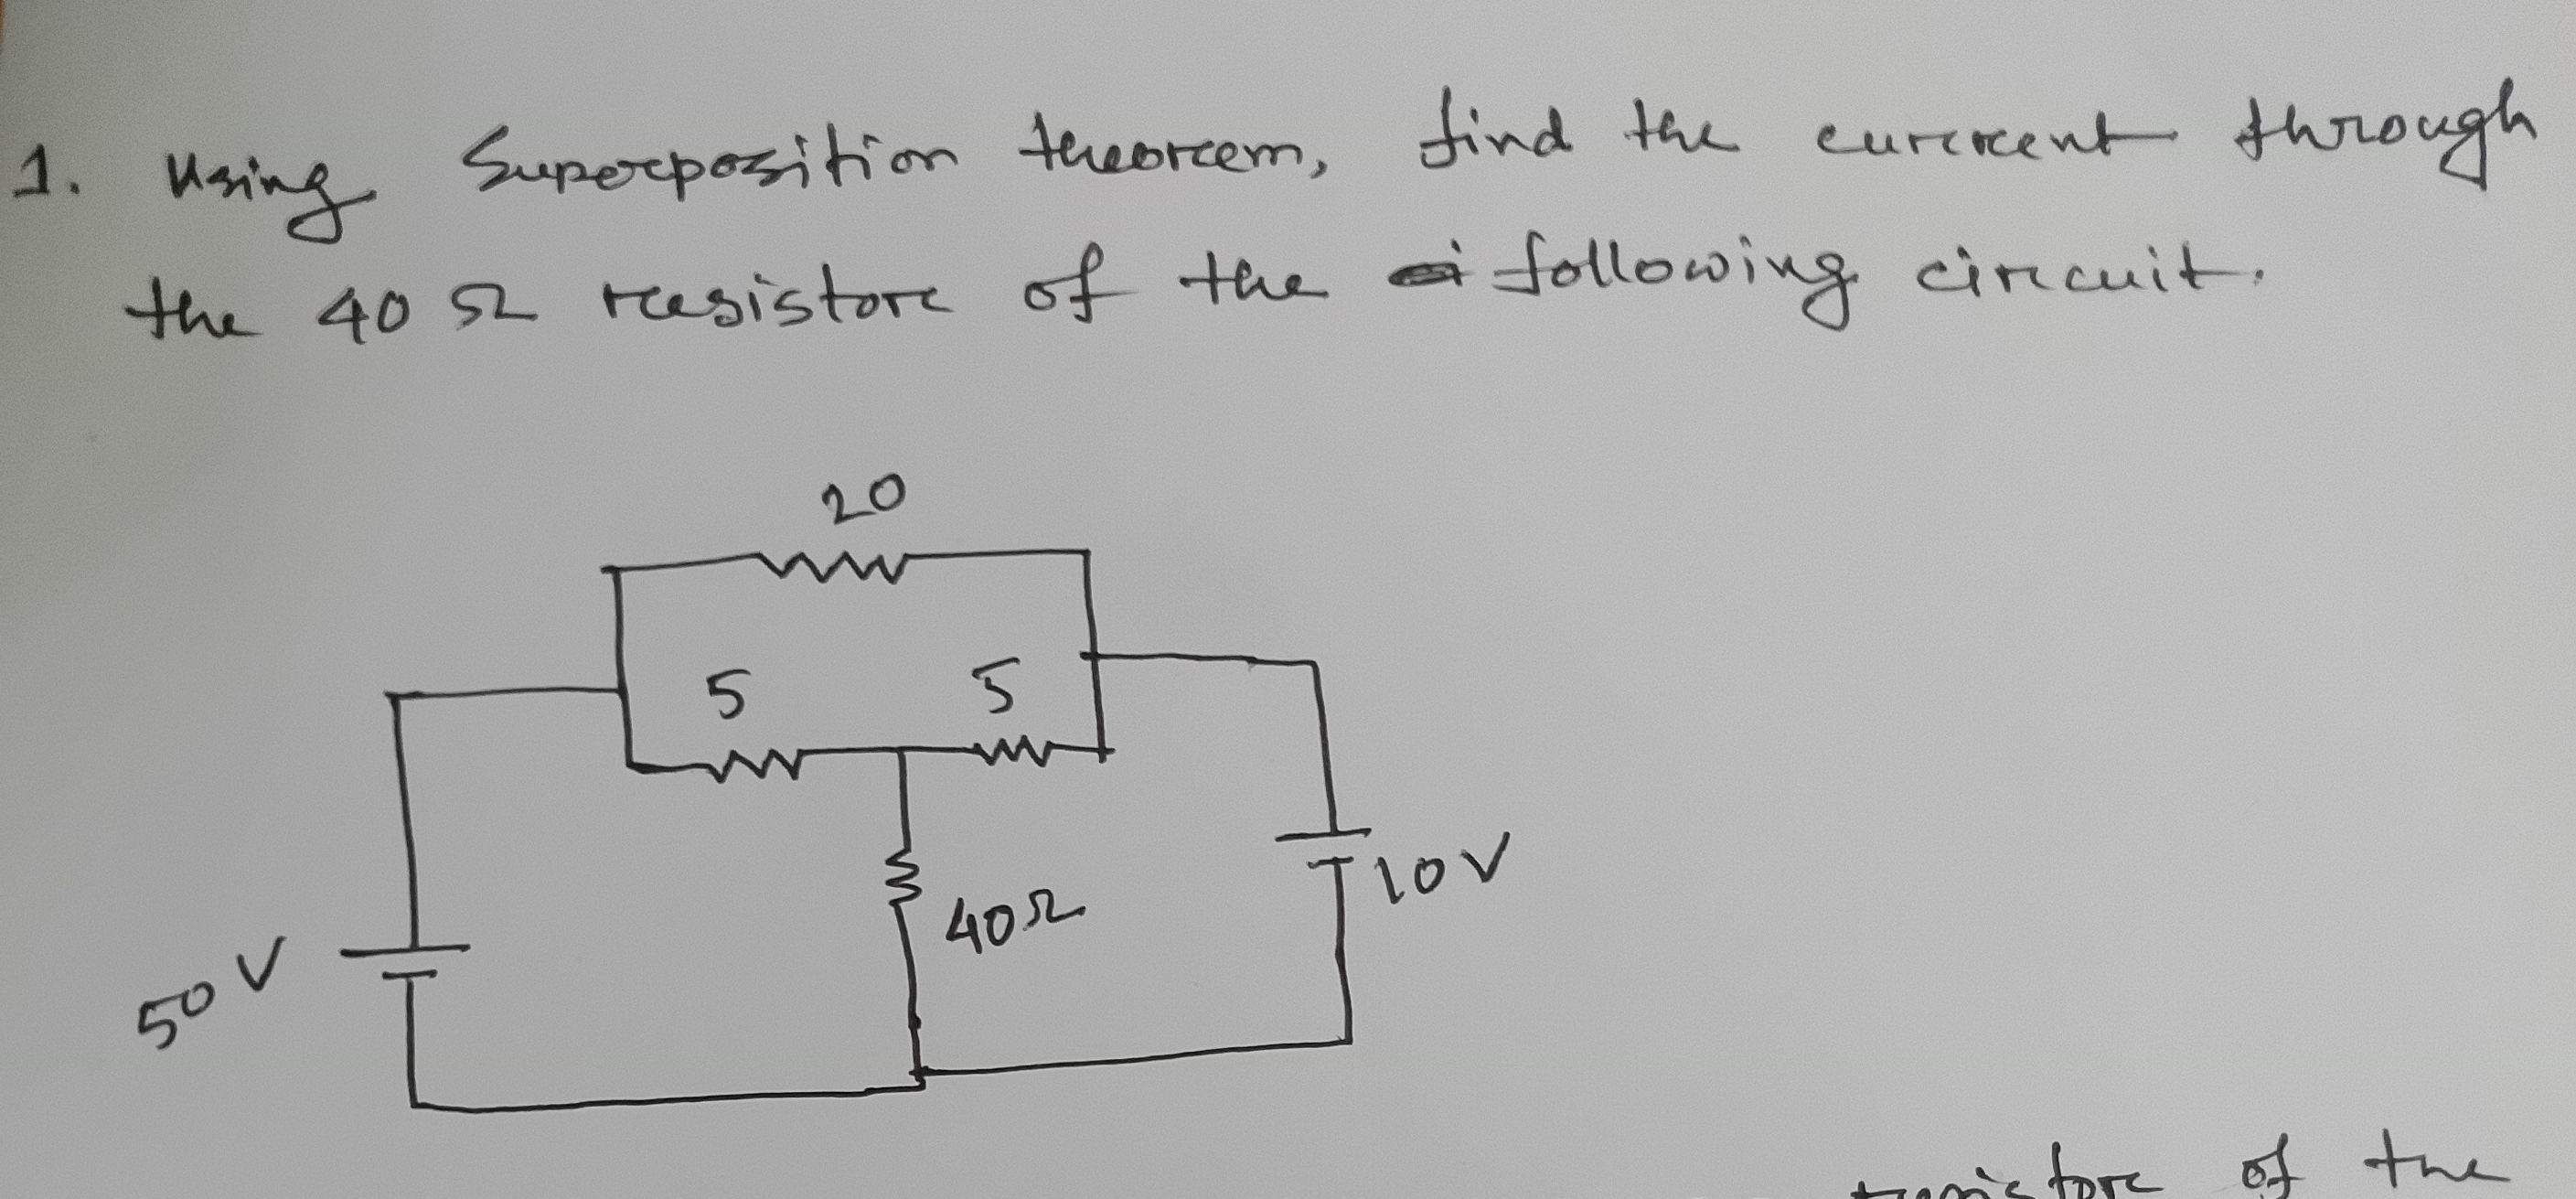 1. Using Superposition theorem, find the current through
the 40 Ω resistor of the following circuit.
20
5 5
40Ω
10V
50 V
of the